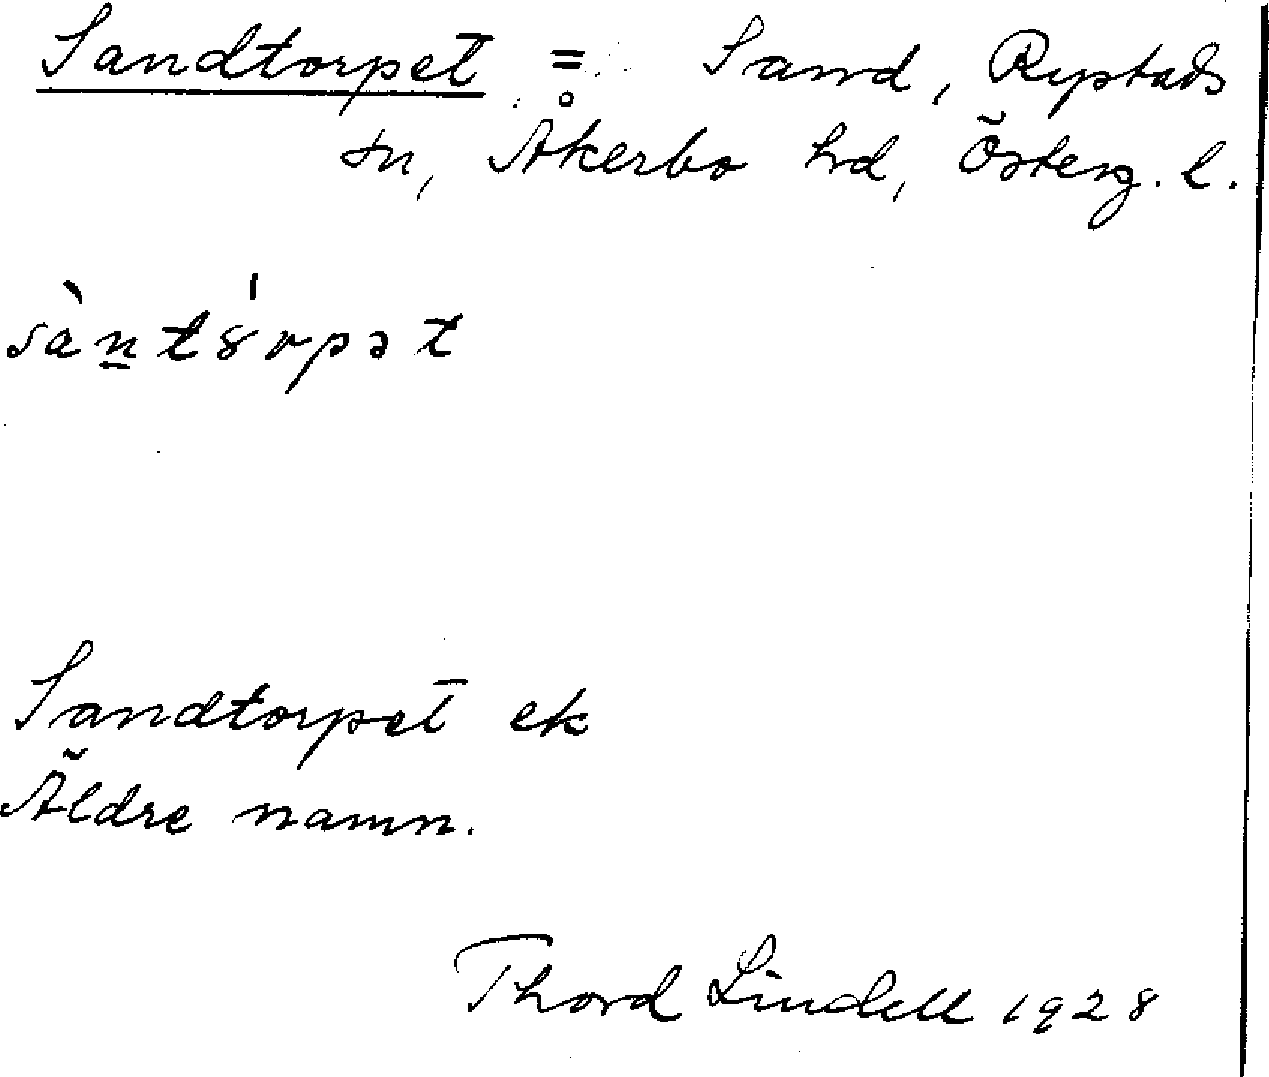 Sandtorpet = Sand, Rystads
sn, Åkerbo hd, Österg. l.
sàn̲t8́rpət
Sandtorpet ek
Äldre namn.
Thord Lindell 1928